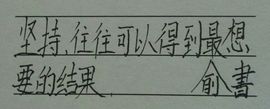 坚持,往往可以得到最想
要的结果 俞書